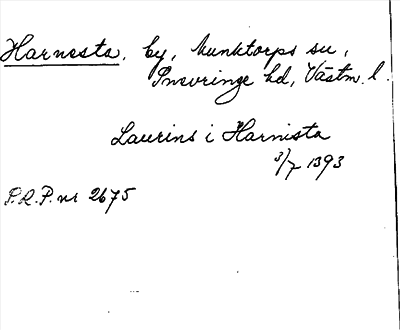 Harnesta, by, Munktorps sn,
Snevringe hd, Västm. l.
Laurins i Harnista
3/7 1393
P.R.P. nr 2675